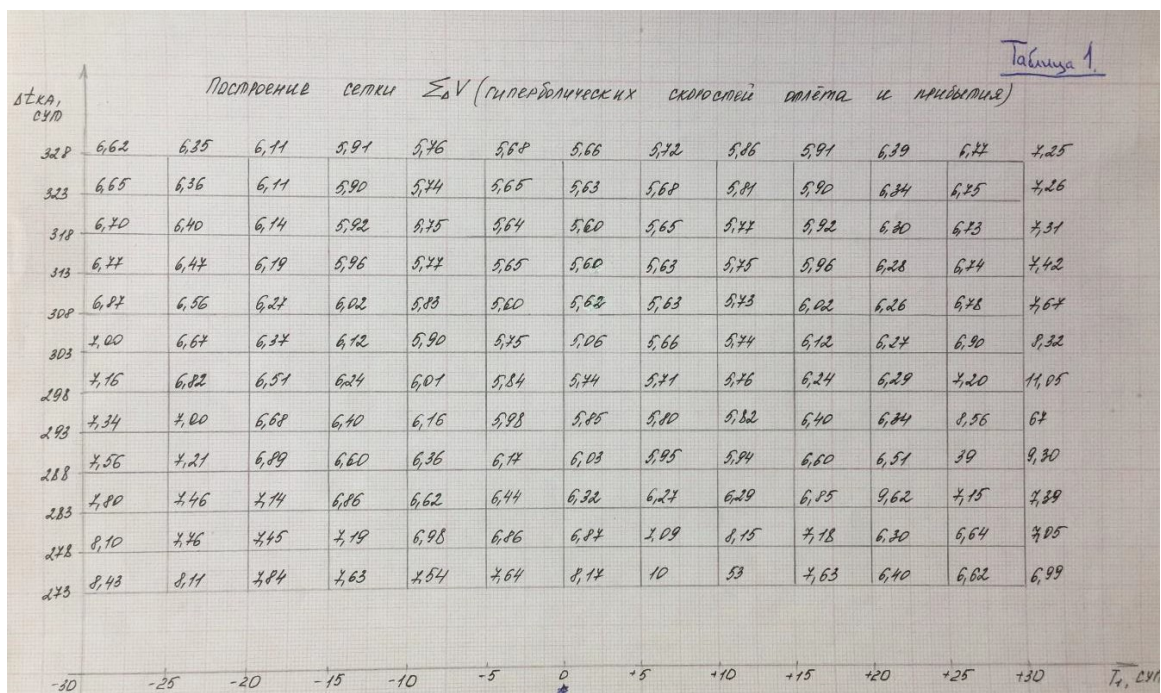 Таблица 1.
Построение сетки Σ∆V (гиперболических скоростей отлёта и прибытия)
∆tКА,
сут
328 6,62 6,35 6,11 5,91 5,76 5,68 5,66 5,72 5,86 5,91 6,39 6,77 7,25
323 6,65 6,36 6,11 5,90 5,74 5,65 5,63 5,68 5,81 5,90 6,34 6,75 7,26
318 6,70 6,40 6,14 5,92 5,75 5,64 5,60 5,65 5,77 5,92 6,30 6,73 7,31
313 6,77 6,47 6,19 5,96 5,77 5,65 5,60 5,63 5,75 5,96 6,28 6,74 7,42
308 6,87 6,56 6,27 6,02 5,83 5,60 5,62 5,63 5,73 6,02 6,26 6,78 7,67
303 7,00 6,67 6,37 6,12 5,90 5,75 5,06 5,66 5,74 6,12 6,27 6,90 8,32
298 7,16 6,82 6,51 6,24 6,01 5,84 5,74 5,71 5,76 6,24 6,29 7,20 11,05
293 7,34 7,00 6,68 6,40 6,16 5,98 5,85 5,80 5,82 6,40 6,34 8,56 67
288 7,56 7,21 6,89 6,60 6,36 6,17 6,03 5,95 5,94 6,60 6,51 39 9,30
283 7,80 7,46 7,14 6,86 6,62 6,44 6,32 6,27 6,29 6,85 9,62 7,15 7,39
278 8,10 7,76 7,45 7,19 6,98 6,86 6,87 7,09 8,15 7,18 6,30 6,64 7,05
273 8,43 8,11 7,84 7,63 7,54 7,64 8,17 10 53 7,63 6,40 6,62 6,99
-30 -25 -20 -15 -10 -5 0 +5 +10 +15 +20 +25 +30 T₁, сут